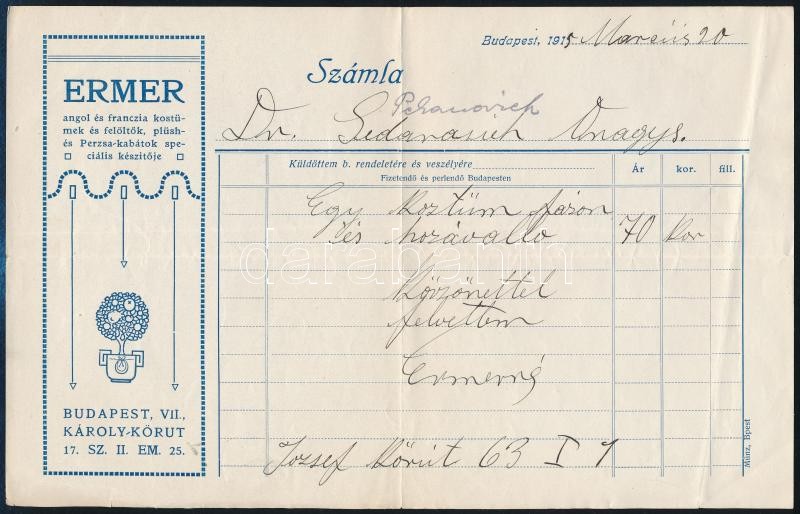 ERMER
angol és franczia kostü-
mek és felöltők, plüsh-
és Perzsa-kabátok spe-
ciális készitője
BUDAPEST, VII.,
KÁROLY-KÖRUT
17. SZ. II. EM. 25.
Budapest, 1915 Marcius 20
Számla
Dr. Onagys.
Küldöttem b. rendeletére és veszélyére
Fizetendő és perlendő Budapesten
Ár kor. fill.
Egy Kosztüm fazon
és hozávalló 70 Kor
Köszönettel
felvettem
Ermerné
József Körút 63 I 1
Münz, Bpest
darabanth